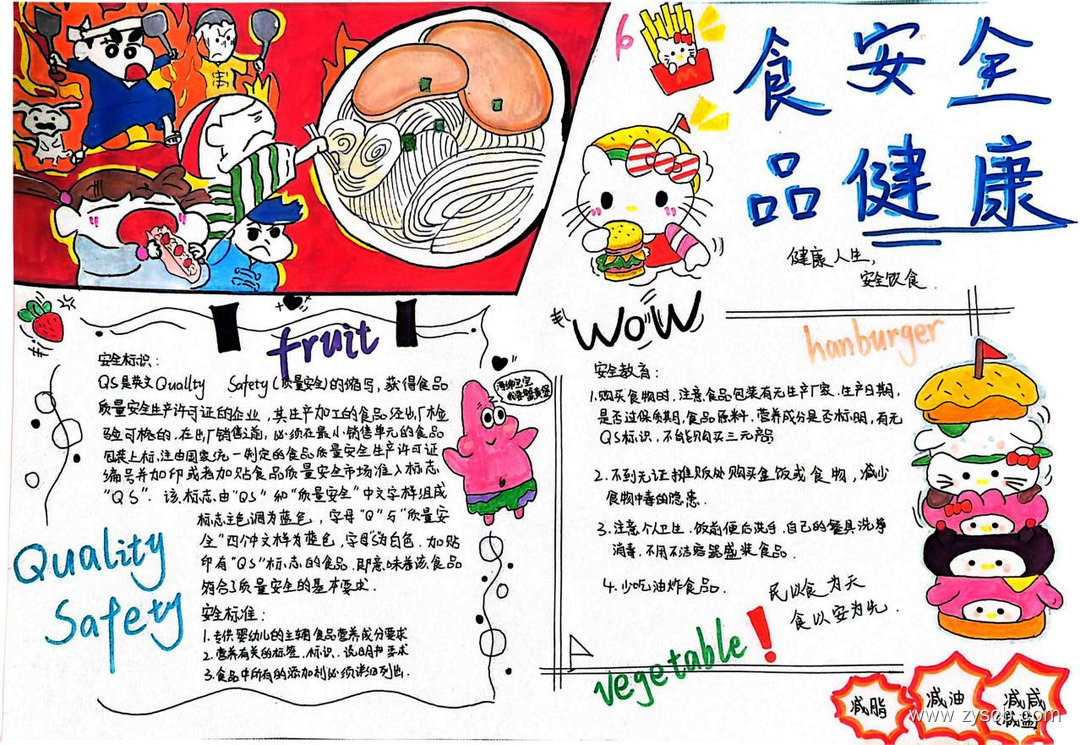 食安全
品健康
健康人生,
安全饮食.
fruit
安全标识:
QS是英文Quallty Safety(质量安全)的缩写,获得食品
质量安全生产许可证的企业,其生产加工的食品经出厂检
验可格的,在出厂销售之前,必须在最小销售单元的食品
包装上标,注由国家统一制定的食品质量安全生产许可证
编号并加印或者加贴食品质量安全市场准入标志
"QS".该标志由"QS"和"质量安全"中文字样组成
标志主色调为蓝色,字母"Q"与"质量安
全"四个中文样为蓝色,字母S为白色.加贴
印有"QS"标志的食品,即意味着该食品
符合了质量安全的基本要求.
安全标准:
1.专供婴幼儿的主辅食品营养成分要求
2.营养有关的标签、标识、说明书要求
3.食品中所有的添加剂必须详细列出.
Quality
Safety
WOW
hanburger
安全教育:
1.购买食物时,注意食品包装有无生产厂家、生产日期,
是否过保质期,食品原料、营养成分是否标明,有无
QS标识,不能购买三无产品
2.不到无证摊贩处购买盒饭或食物,减少
食物中毒的隐患.
3.注意个人卫生,饭前便后洗手,自己的餐具洗净
消毒,不用不洁容器盛装食品.
4.少吃油炸食品.
民以食为天
食以安为先.
vegetable!
减脂
减油
减咸
(减盐)
www.zyscb.com